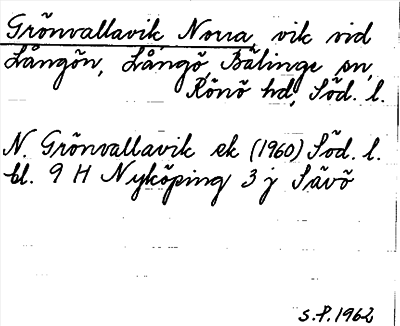 Grönvallavik, Norra, vik vid
Långön, Långö, Bälinge sn,
Rönö hd, Söd. l.
N. Grönvallavik ek (1960) Söd. l.
bl. 9 H Nyköping 3 j Sävö
S.P. 1962